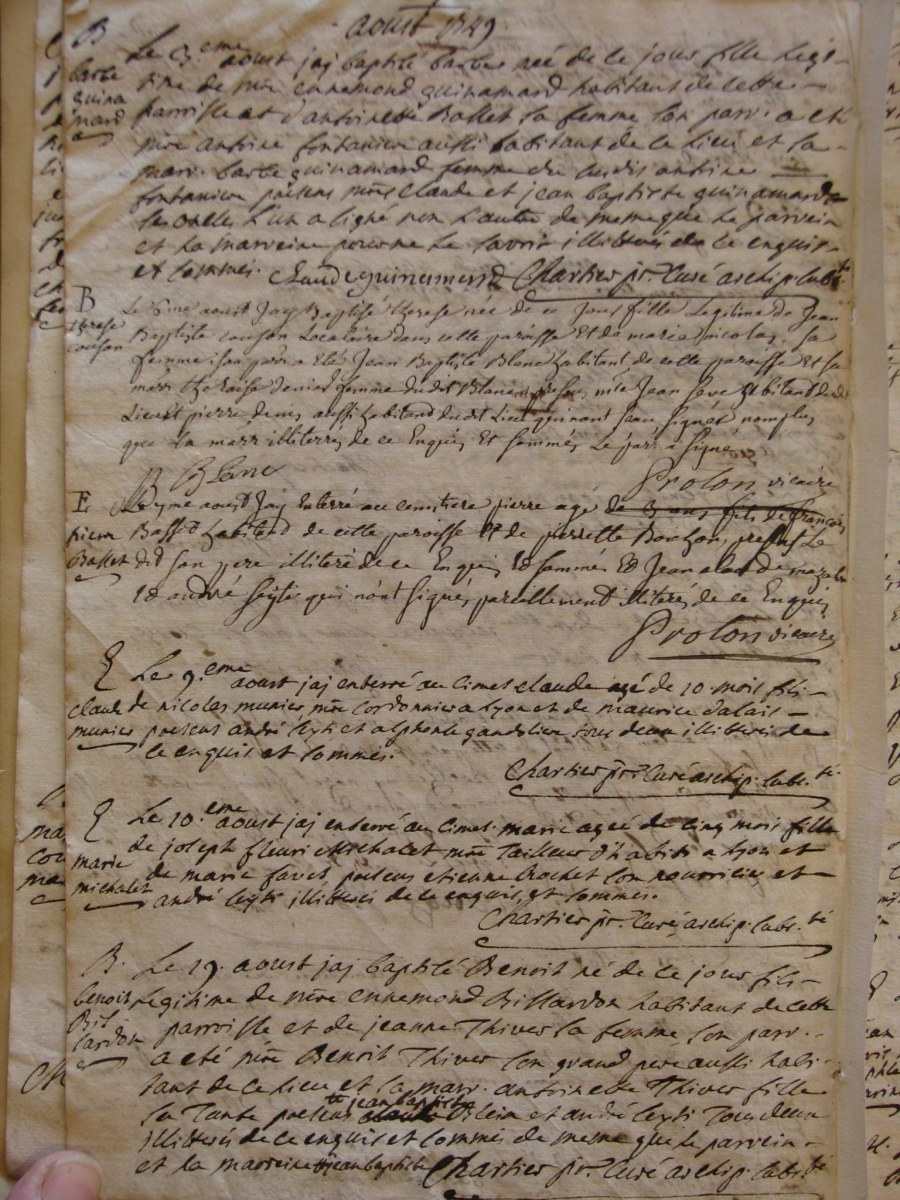 aoust 1749
B Le 3.eme aoust jaj baptisé barbe née de ce jour fille legi-
barbe time de sieur ennemond guinamard habitant de cette
guina parroisse et d'antoinette Basset sa femme son parr. a eté
mard sieur antoine fontanier aussi habitant de ce lieu et la
marr. barbe guinamard femme du susdit antoine
fontanier presens sieurs claude et jean baptiste guinamard
ses oncles l'un a signé non l'autre de meme que le parrein
et la marreine pour ne le savoir illitterés de ce enquis
et sommés. Claude guinemand Chartier pr. Curé archip. subs.té
B Le 6me aoust Jay Baptisé therese née de ce Jour fille Legitime de Jean
therese Baptiste couson Locataire dans cette paroisse Et de marie nicolas sa
couson femme; son parr a Eté Jean Baptiste Blanc habitant de cette paroisse Et sa
marr theraise denis femme du dit Blanc, present Jean habitand du dit
Lieu et pierre denis aussi habitand du dit Lieu qui nont sceu signer, nomplus
que La marr illiterés de ce Enquis Et sommés Le parr a signé
B Blanc Prolon vicaire
E Le yme aoust Jay Enterré au cemitiere pierre agé de 3 ans fils de francois
pierre Basset habitand de cette paroisse Et de pierrette Bochon, present Le
Basset dit son pere illiteré de ce Enquis Et sommés Et Jean
Et andré seyti qui n'ont signés pareillement illiterés de ce Enquis
Prolon vicaire
E Le 9.eme aoust jaj enterré au cimet. claude agé de 10 mois fils
claude de nicolas munier sieur cordonnier a Lyon et de maurice dalais
munier presens andré seyti et alphonse gandelier tous deux illitterés de
ce enquis et sommés.
Chartier pr. Curé archip. subs.té
E Le 10.eme aoust jaj enterré au cimet. marie ageé de cinq mois fille
marie de joseph fleuri Michalet sieur Tailleur d'habits a Lyon et
michalet de marie favet, presens etienne Crochet son nourricier et
andré seyti illitterés de ce enquis, et sommés.
Chartier pr. Curé archip. subs.té
B. Le 19. aoust jaj baptisé Benoit né de ce jour fils
benoit Legitime de sieur ennemond Billardon habitant de cette
Bil parroisse et de jeanne Thiver sa femme son parr.
lardon a eté sieur Benoit Thiver son grand pere aussi habi-
tant de ce lieu et sa marr. antoinette Thiver fille
sa Tante presens jean baptiste Vilein et andré seyti Tous deux
illitterés de ce enquis et sommés de meme que le parrein
et la marreine jean baptiste Chartier pr. Curé archip. subs.té